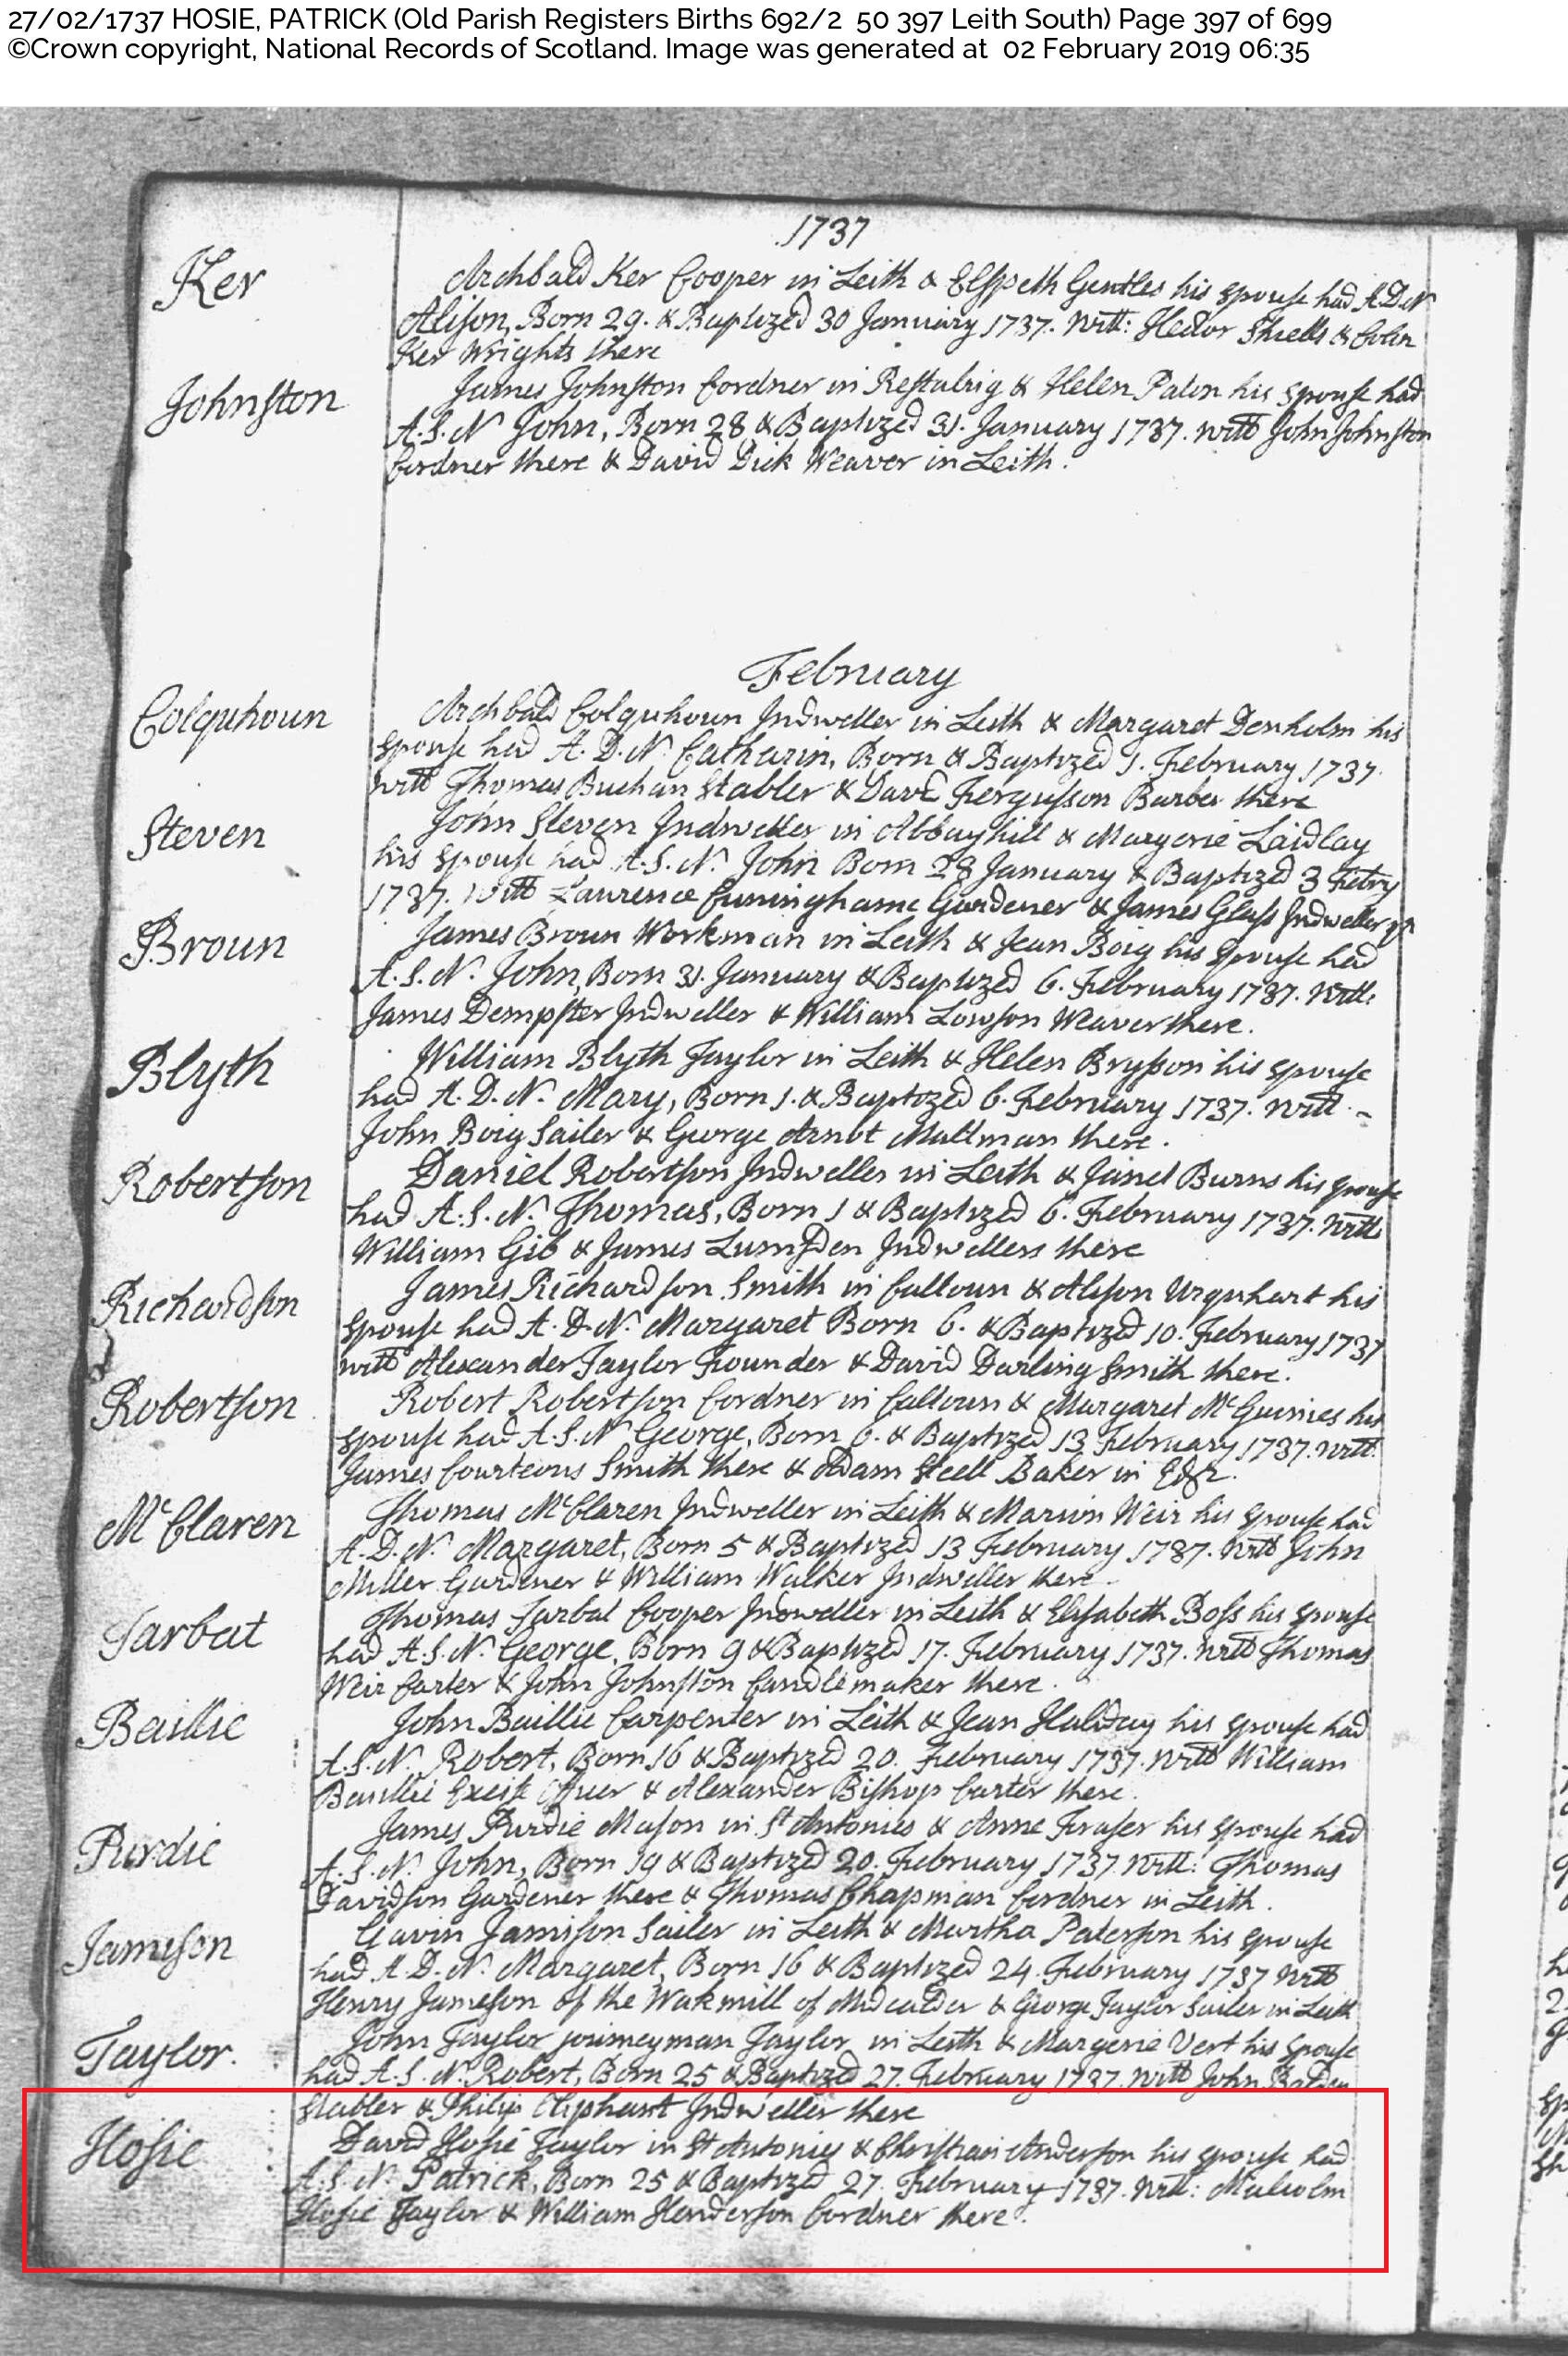 27/02/1737 HOSIE, PATRICK (Old Parish Registers Births 692/2 50 397 Leith South) Page 397 of 699
©Crown copyright, National Records of Scotland. Image was generated at 02 February 2019 06:35
1737
Ker
Archbald Ker Cooper in Leith & Elspeth Gentles his spouse had A.D.N
Alison, Born 29. & Baptized 30 January 1737. Witt: Hector Shiells & Colin
Ker Wrights there
Johnston
James Johnston Cordner in Restalrig & Helen Paton his spouse had
A.S.N John, Born 28 & Baptized 31. January 1737. Witt John Johnston
Cordner there & David Dick Weaver in Leith.
February
Colquhoun
Archbald Colquhoun Indweller in Leith & Margaret Denholm his
spouse had A.D.N. Catharin, Born & Baptized 1. February 1737.
Witt Thomas Buchan Stabler & Davd Fergusson Barber there
Steven
John Steven Indweller in Abbayhill & Margerie Laidlay
his spouse had A.S.N. John Born 28 January & Baptized 3 Febry
1737. Witt Laurence Cuninghame Gardener & James Glass Indweller yr
Broun
James Broun Workman in Leith & Jean Boig his spouse had
A.S.N. John, Born 31. January & Baptized 6. February 1737. Witt:
James Dempster Indweller & William Lowson Weaver there.
Blyth
William Blyth Taylor in Leith & Helen Brysson his spouse
had A.D.N. Mary, Born 1. & Baptized 6. February 1737. Witt.
John Boig Sailer & George Arnot Maltman there.
Robertson
Daniel Robertson Indweller in Leith & Janet Burns his spouse
had A.S.N. Thomas, Born 1 & Baptized 6. February 1737. Witt:
William Gib & James Lumsden Indwellers there
Richardson
James Richardson Smith in Caltoun & Alison Urquhart his
spouse had A.D.N. Margaret Born 6. & Baptized 10. February 1737
Witt Alexander Taylor Founder & David Darling Smith there.
Robertson
Robert Robertson Cordner in Caltoun & Margaret McGuinies his
spouse had A.S.N George, Born 6. & Baptized 13 February 1737. Witt.
James Courteous Smith there & Adam Steell Baker in Edr.
McClaren
Thomas McClaren Indweller in Leith & Marion Weir his spouse had
A.D.N. Margaret, Born 5 & Baptized 13 February 1737. Witt John
Miller Gardener & William Walker Indweller there
Tarbat
Thomas Tarbat Cooper Indweller in Leith & Elisabeth Boss his spouse
had A.S.N. George, Born 9 & Baptized 17. February 1737. Witt Thomas
Weir Carter & John Johnston Candlemaker there.
Baillie
John Baillie Carpenter in Leith & Jean Haliday his spouse had
A.S.N. Robert, Born 16 & Baptized 20. February 1737. Witt William
Baillie Excise Officer & Alexander Bishop Carter there.
Purdie
James Purdie Mason in St Antonies & Anne Fraser his spouse had
A.S.N. John, Born 19 & Baptized 20. February 1737. Witt: Thomas
Davidson Gardener there & Thomas Chapman Cordner in Leith.
Jameson
Gavin Jamison Sailer in Leith & Martha Paterson his spouse
had A.D.N. Margaret, Born 16 & Baptized 24. February 1737 Witt
Henry Jameson of the Wakmill of Midcalder & George Taylor Sailer in Leith
Taylor.
John Taylor journeyman Taylor in Leith & Margerie Vert his spouse
had A.S.N. Robert, Born 25 & Baptized 27. February 1737. Witt John
Stabler & Philip Oliphant Indweller there
Hosie
David Hosie Taylor in St Antonies & Christian Anderson his spouse had
A.S.N. Patrick, Born 25 & Baptized 27. February 1737. Witt: Malcolm
Hosie Taylor & William Henderson Cordner there.